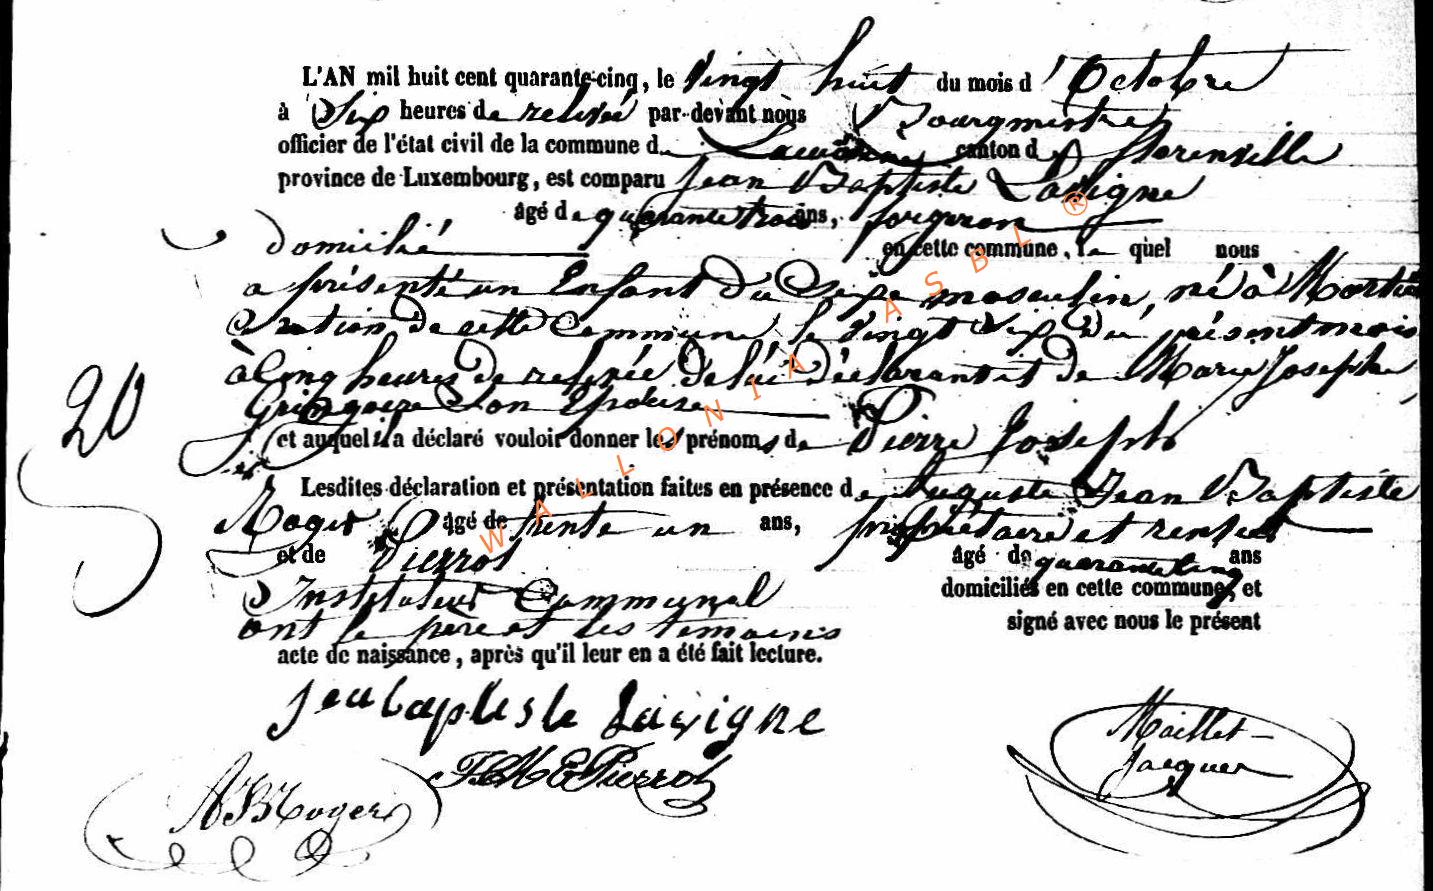 L'AN mil huit cent quarante-cinq, le vingt huit du mois d'Octobre
à Six heures de relevée par-devant nous Bourgmestre
officier de l'état civil de la commune de Lacuisine canton de florenville
province de Luxembourg, est comparu Jean Baptiste Lavigne
âgé de quarante trois ans, forgeron
domicilié en cette commune, le quel nous
a présenté un Enfant du Sexe masculin, né à Martué
Section de cette Commune, le vingt Six du présent mois
à Cinq heures de relevée de lui déclarant et de Marie Josephe
Gringoire Son Epouse
20
et auquel il a déclaré vouloir donner les prénoms de Pierre Joseph
Lesdites déclaration et présentation faites en présence de Auguste Jean Baptiste
Roger âgé de trente un ans, propriétaire et rentier
et de Pierrot âgé de quarante cinq ans
Instituteur Communal domiciliés en cette commune, et
ont le père et les temoins signé avec nous le présent
acte de naissance, après qu'il leur en a été fait lecture.
Jean baptiste Lavigne
Maillet-
Jacques
Pierrot
Roger
WALLONIA ASBL ®